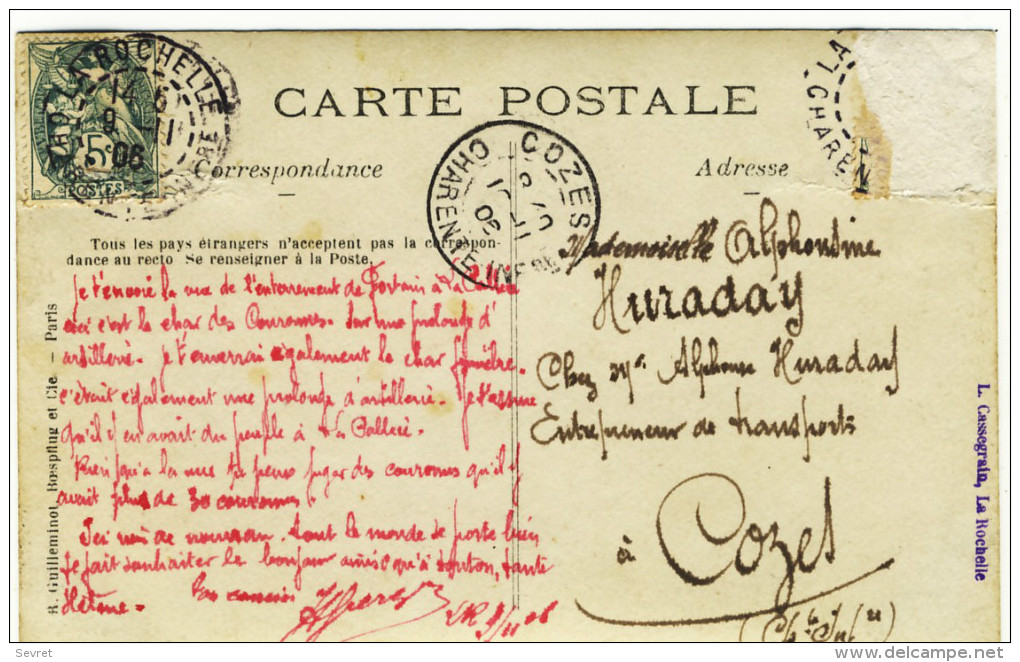 CARTE POSTALE
Correspondance
Adresse
LA ROCHELLE
14 5
9 - 11
06
5c
POSTES
COZES
CHARENTE INFRE
LA
CHAREN
Tous les pays étrangers n'acceptent pas la correspon-
dance au recto Se renseigner à la Poste.
Je t'envoie la vue de l'enterrement de à La Pallice
ici c'est le char des Couronnes. Sur une prolonge d'
artillerie. Je t'enverrai également le char funèbre.
c'était également une prolonge d'artillerie. Je t'assure
qu'il y en avait du peuple à La Pallice.
Rien qu'à la vue tu peux juger des couronnes qu'il y
avait plus de 30 couronnes.
Ici rien de nouveau. tout le monde se porte bien
te fait souhaiter le bonjour ainsi qu'à tonton, tante
Ton cousin
LR 9/11 06
Mademoiselle Alphonsine
Huraday
Chez Mr Alphonse Huraday
Entrepreneur de transports
à Cozes
(Ch. Infre)
R. Guilleminot, Bœspflug et Cie - Paris
L. Cassegrain, La Rochelle
delcampe.net
Sevret